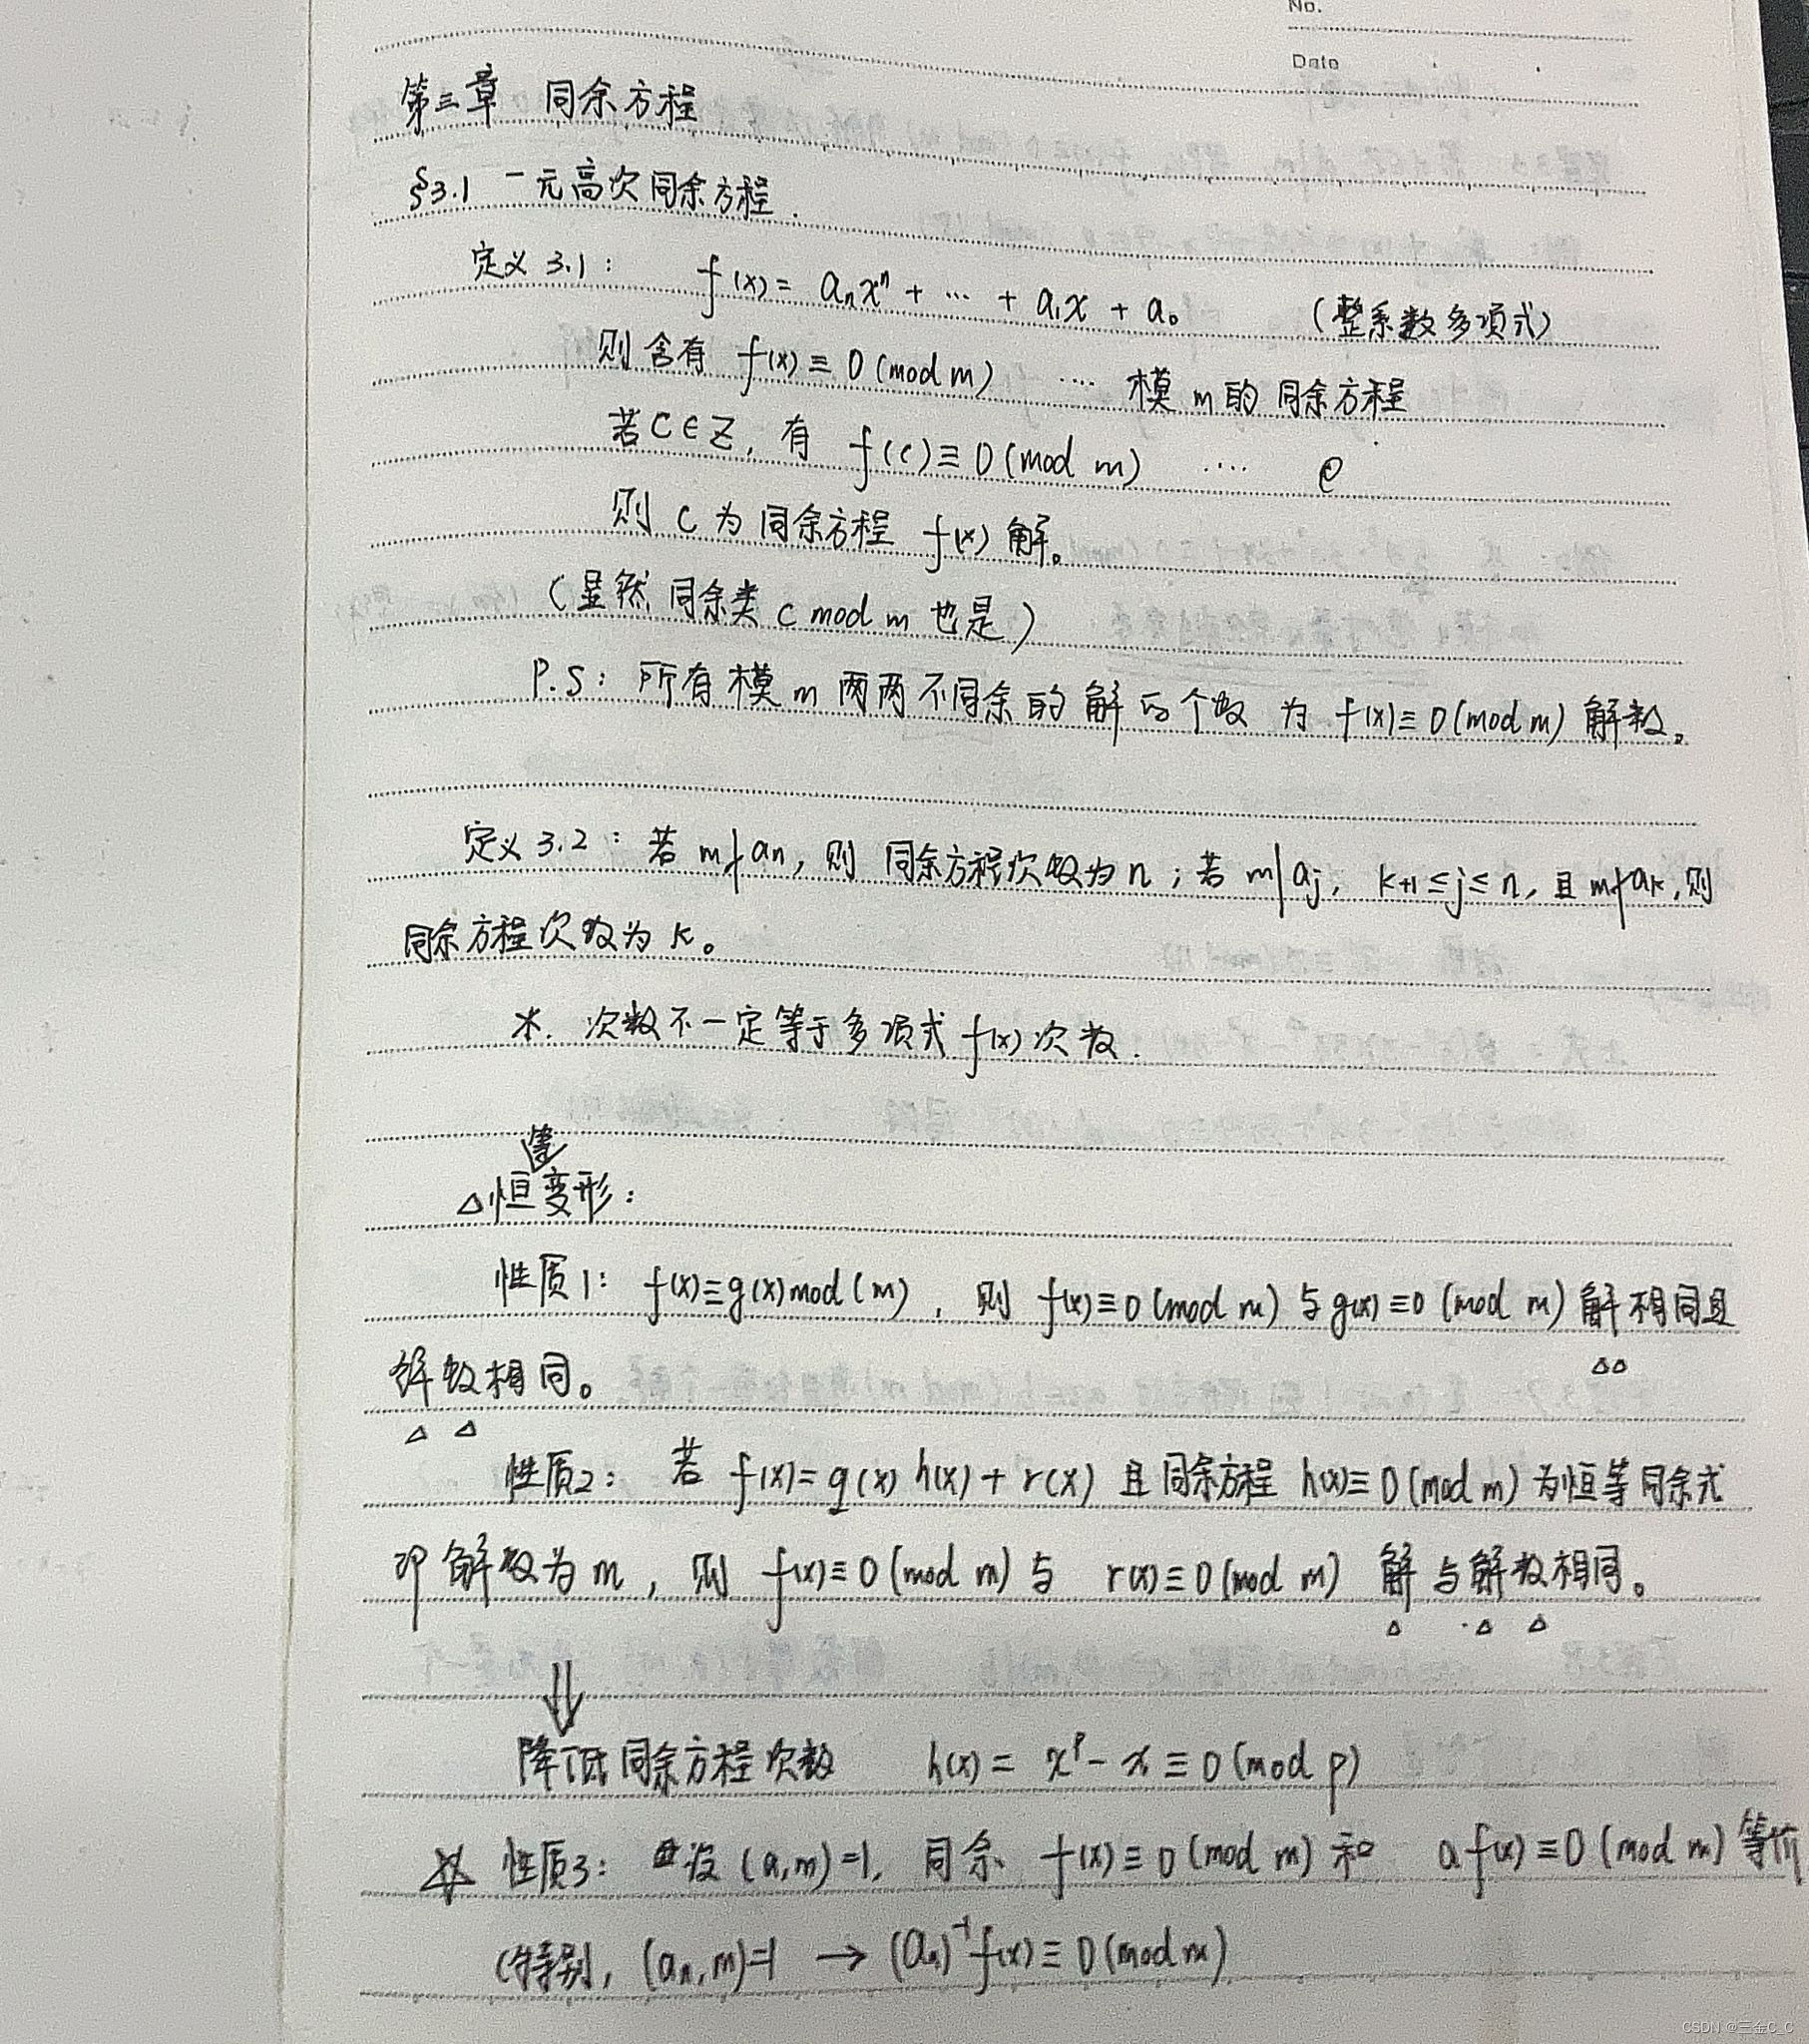 No.
Date
第三章 同余方程
§3.1 一元高次同余方程.
定义3.1: f(x)= aₙxⁿ + … + a₁x + a₀ (整系数多项式)
则含有 f(x)≡0(mod m) …. 模m的同余方程
若C∈Z, 有 f(c)≡0(mod m) ….
则 C 为同余方程 f(x) 解。
(显然同余类 C mod m 也是)
P.S: 所有模m两两不同余的解的个数 为 f(x)≡0(mod m) 解数。
定义3.2: 若 m∤aₙ, 则 同余方程次数为n; 若 m|aⱼ, k+1≤j≤n, 且m∤aₖ,则
同余方程次数为 k。
*. 次数不一定等于多项式 f(x) 次数.
等
△恒变形:
性质1: f(x)≡g(x)mod(m), 则 f(x)≡0(mod m)与g(x)≡0(mod m) 解相同且
△△
解数相同。
△ △
性质2: 若 f(x)=q(x)h(x)+r(x) 且同余方程 h(x)≡0(mod m)为恒等同余式
即解数为m, 则 f(x)≡0(mod m)与 r(x)≡0(mod m) 解与解数相同。
△ △ △
⇓
降低同余方程次数 h(x)= xᵖ-x≡0(mod p)
☆ 性质3: 设(a,m)=1, 同余 f(x)≡0(mod m)和 af(x)≡0(mod m)等价
(特别, (aₙ,m)=1 → (aₙ)⁻¹f(x)≡0(mod m)
CSDN @三金C_C